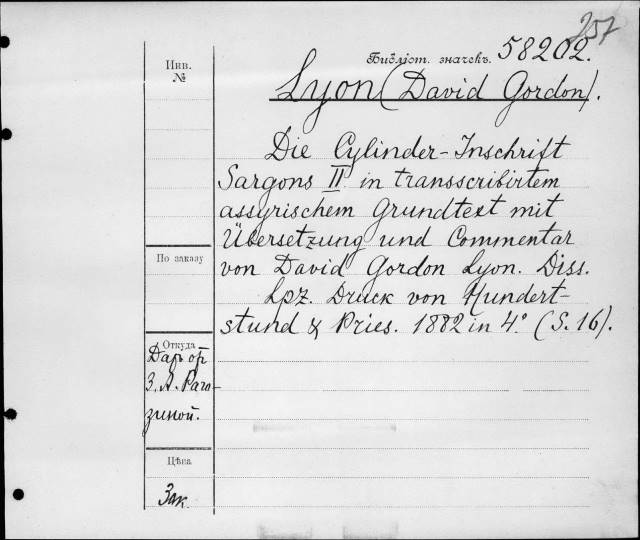 257
Библіот. значекъ. 58202.
Инв.
№
Lyon (David Gordon).
Die Cylinder-Inschrift
Sargons II in transscribirtem
assyrischem Grundtext mit
Übersetzung und Commentar
По заказу
von David Gordon Lyon. Diss.
Lpz. Druck von Hundert-
stund & Pries. 1882 in 4° (S. 16).
Откуда
Даръ от
З. А. Раго-
зиной.
Цѣна
Зак.